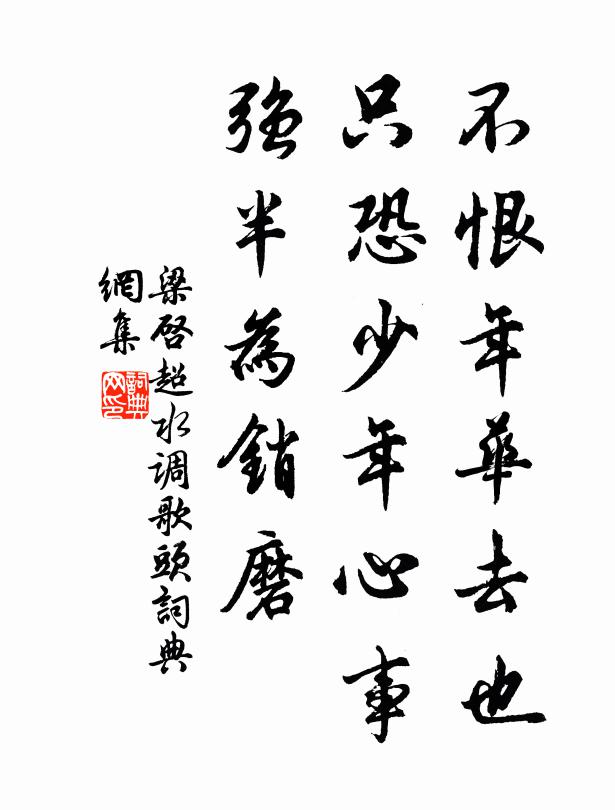 不恨年華去也
只恐少年心事
強半為銷磨
梁啓超水调歌頭詞典
網集
詞典
网印